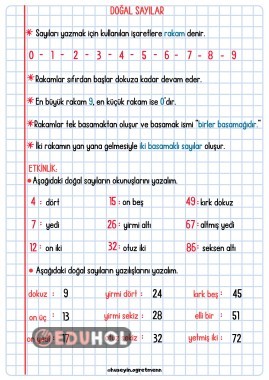 DOĞAL SAYILAR
* Sayıları yazmak için kullanılan işaretlere rakam denir.
0 - 1 - 2 - 3 - 4 - 5 - 6 - 7 - 8 - 9
* Rakamlar sıfırdan başlar dokuza kadar devam eder.
* En büyük rakam 9, en küçük rakam ise 0'dır.
* Rakamlar tek basamaktan oluşur ve basamak ismi "birler basamağıdır."
* İki rakamın yan yana gelmesiyle iki basamaklı sayılar oluşur.
ETKİNLİK:
* Aşağıdaki doğal sayıların okunuşlarını yazalım.
4 : dört 15 : on beş 49 : kırk dokuz
7 : yedi 26 : yirmi altı 67 : altmış yedi
12 : on iki 32 : otuz iki 86 : seksen altı
* Aşağıdaki doğal sayıların yazılışlarını yazalım.
dokuz : 9 yirmi dört : 24 kırk beş : 45
on üç : 13 yirmi sekiz : 28 elli bir : 51
17 32 yetmiş iki : 72
EDUHOL